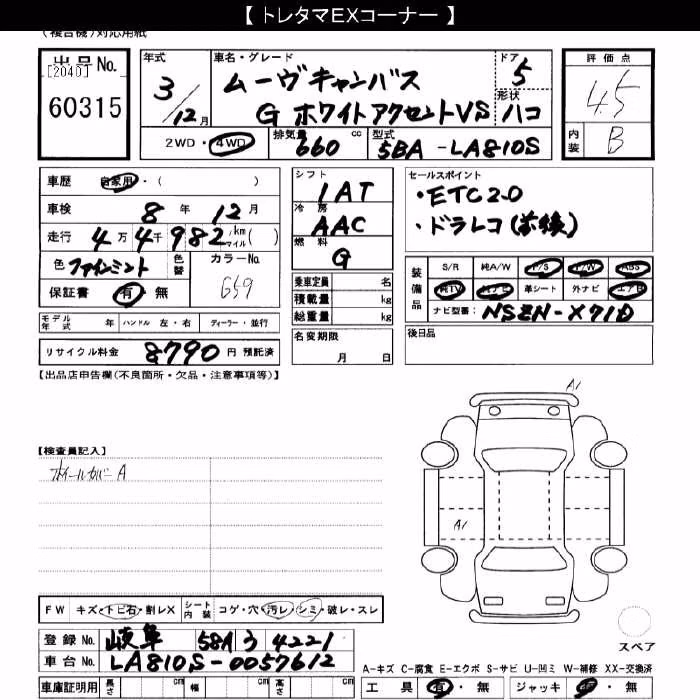 【 トレタマEXコーナー 】
(複合機)対応用紙
出品No.
[2040]
60315
年式
3/12月
車名・グレード
ムーヴキャンバス
G ホワイトアクセントVS
ドア
5
形状
ハコ
2WD・4WD
排気量
660 cc
型式
5BA-LA810S
評価点
4.5
内装
B
車歴 自家用・( )
車検 8年12月
走行 4万4千982km/マイル( )
色 ファインミント
色替
カラーNo.
G59
保証書 有・無
シフト
IAT
冷房
AAC
燃料
G
乗車定員 名
積載量 kg
総重量 kg
セールスポイント
・ETC2.0
・ドラレコ(前後)
装備品
S/R 純A/W P/S P/W ABS
純TV 純ナビ 革シート 外ナビ エアB
ナビ型番: NSZN-X71D
モデル年式 年 ハンドル 左・右 ディーラー・並行
リサイクル料金 8790円 預託済
名変期限
月 日
後日品
【出品店申告欄(不良箇所・欠品・注意事項等)】
【検査員記入】
ホイールカバーA
A1
A1
FW キズ・トビ石・割レX
シート内装 コゲ・穴・汚レ・シミ・破レ・スレ
登録No. 岐阜 58A う 4221
車台No. LA810S-0057612
車庫証明用 長さ cm 幅 cm 高さ cm
スペア
A-キズ C-腐食 E-エクボ S-サビ U-凹ミ W-補修 XX-交換済
工具 有・無 ジャッキ 有・無